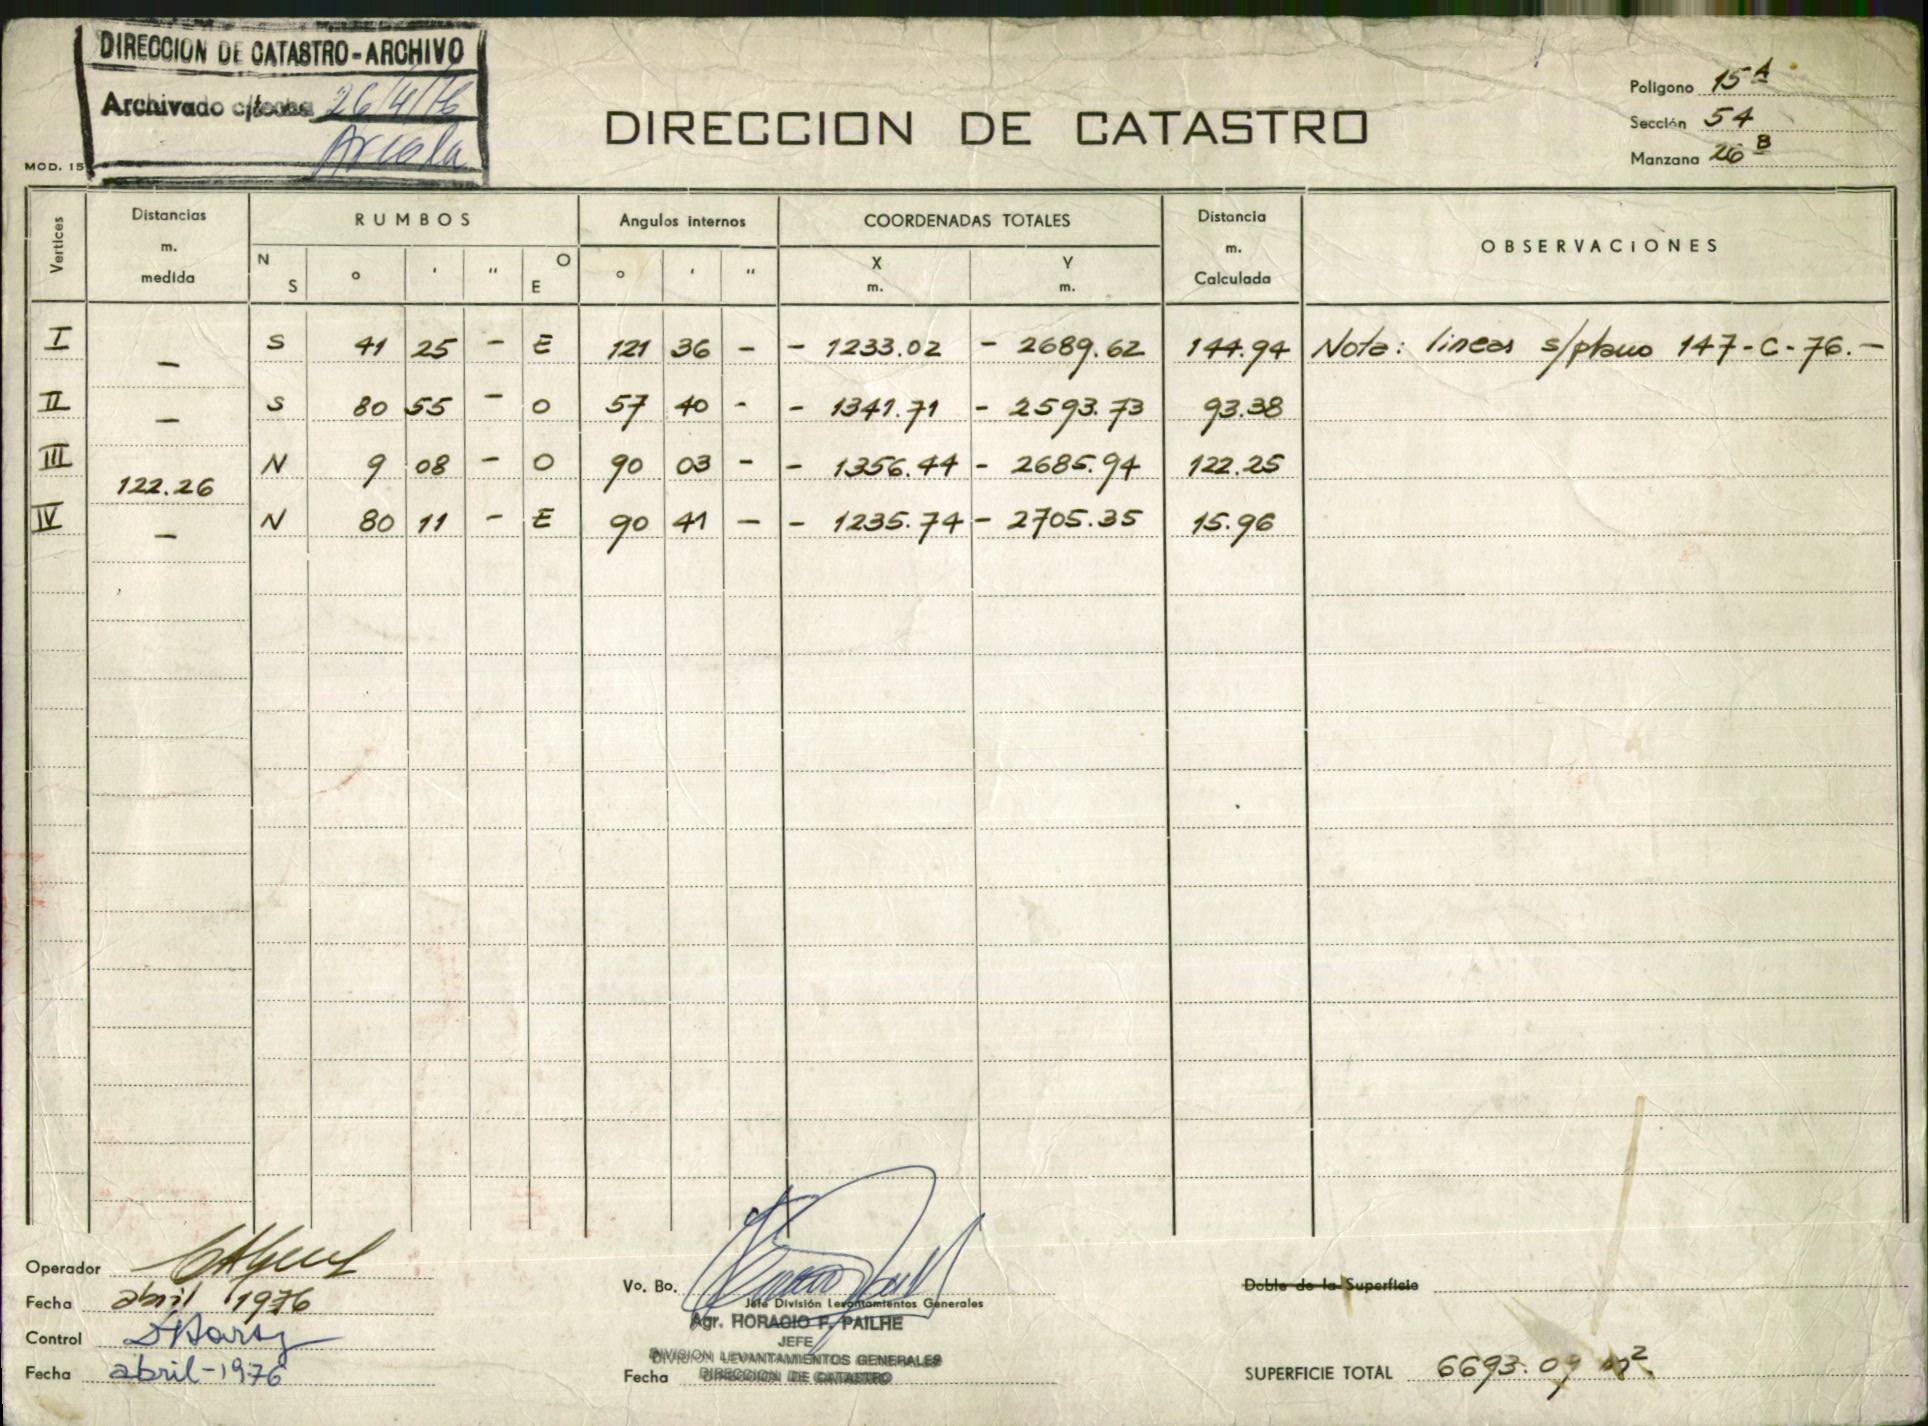 DIRECCION DE CATASTRO-ARCHIVO
Archivado c/fecha 26/4/76
Arcola
MOD. 15
DIRECCION DE CATASTRO
Poligono 15 A
Sección 54
Manzana 26 B
Vertices Distancias m. medida RUMBOS Angulos internos COORDENADAS TOTALES Distancia m. Calculada OBSERVACIONES
N S ° ' " O E ° ' " X m. Y m.
I — S 41 25 - E 121 36 - - 1233.02 - 2689.62 144.94 Nota: lineas s/plano 147-C-76.-
II — S 80 55 - O 57 40 - - 1341.71 - 2593.73 93.38
III 122.26 N 9 08 - O 90 03 - - 1356.44 - 2685.94 122.25
IV — N 80 11 - E 90 41 - - 1235.74 - 2705.35 15.96
Operador
Fecha abril 1976
Control
Fecha abril-1976
Vo. Bo.
Jefe División Levantamientos Generales
Agr. HORACIO F. PAILHE
JEFE
DIVISION LEVANTAMIENTOS GENERALES
Fecha DIRECCION DE CATASTRO
Doble de la Superficie
SUPERFICIE TOTAL 6693.09 m²